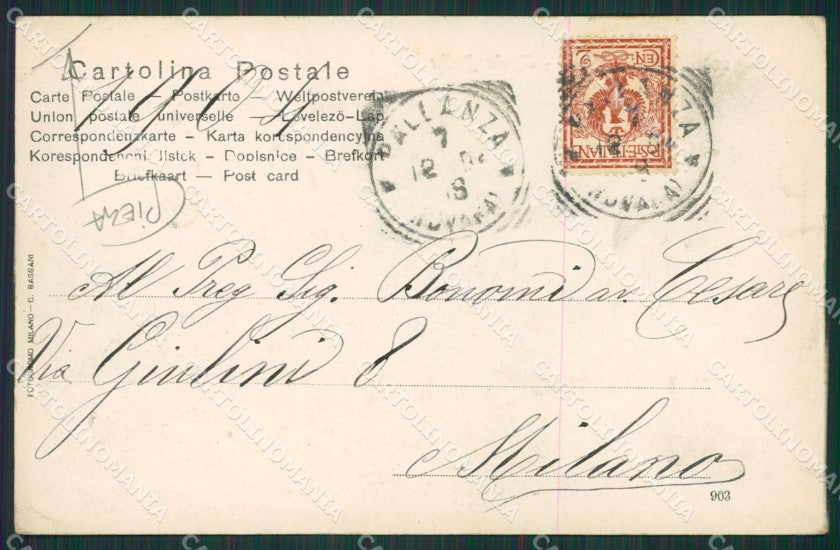 Cartolina Postale
Carte Postale – Postkarte – Weltpostverein
Union postale universelle – Levelező-Lap
Correspondenzkarte – Karta korespondencyjna
Korespondencni listek – Dopisnice – Brefkort
Briefkaart – Post card
1904
PIEGA
PALLANZA
7
12
8
(NOVARA)
Al Preg Sig. Bonomi av Cesare
Via Giulini 8
Milano
903
FOTOCROMO MILANO – C. BASSANI
POSTE ITALIANE
CEN. 2
CARTOLINOMANIA